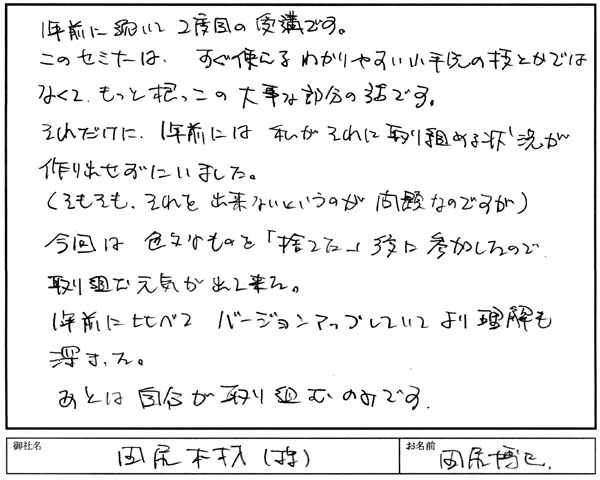 1年前に続いて2度目の受講です。
このセミナーは、すぐ使えるわかりやすい小手先の技とかでは
なくて、もっと根っこの大事な部分の話です。
それだけに、1年前には私がそれに取り組める状況が
作り出せずにいました。
(そもそも、それを出来ないというのが問題なのですが)
今回は色々なものを「捨てた」後に参加したので
取り組む元気が出て来た。
1年前に比べてバージョンアップしていてより理解も
深まった。
あとは自分が取り組むのみです。
御社名 田尻木材(株) お名前 田尻博己